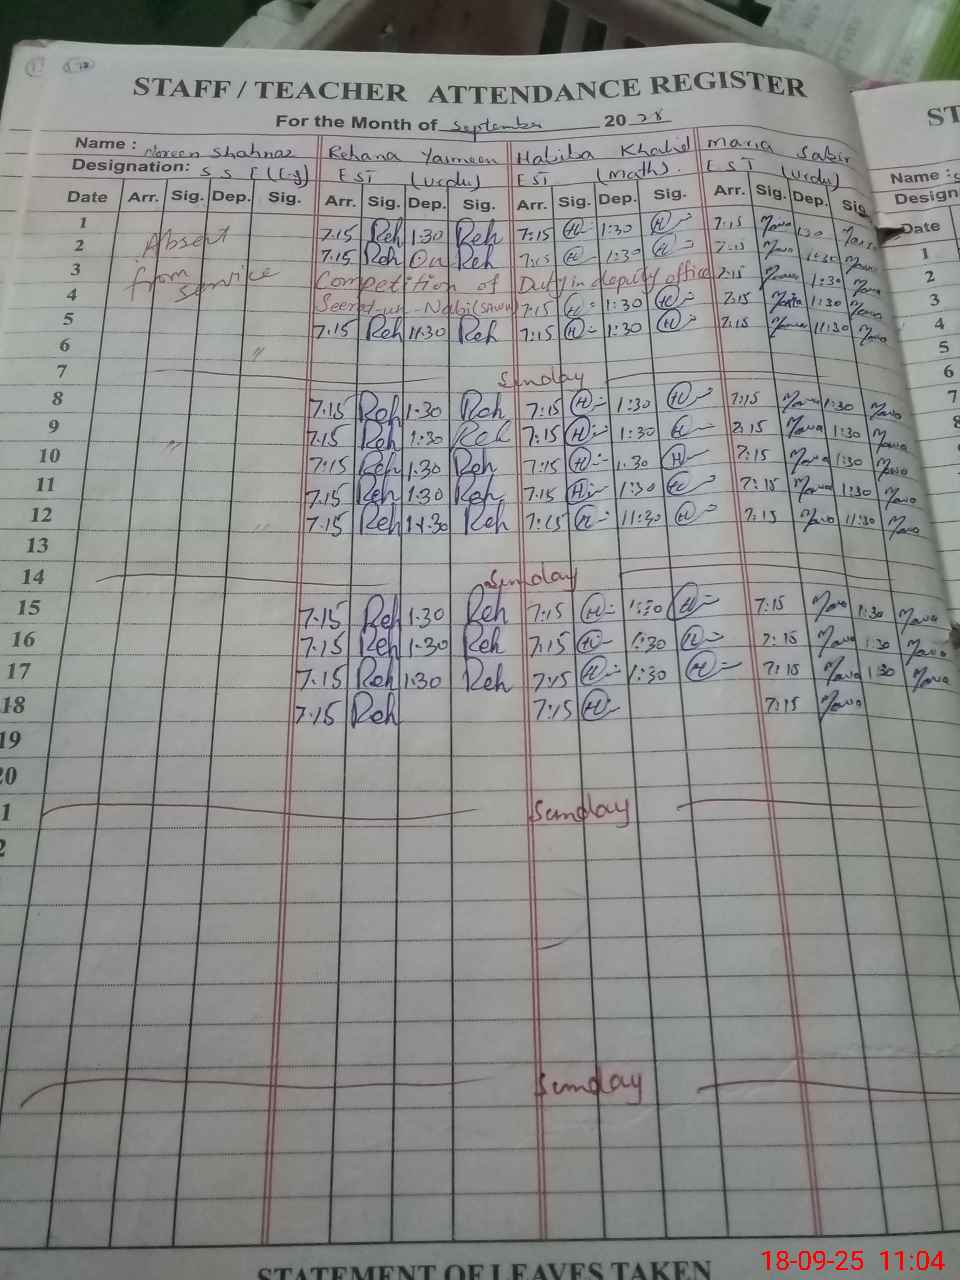 STAFF / TEACHER ATTENDANCE REGISTER
For the Month of September 20
Name : Noreen Shahnaz Rehana Yasmeen Habiba Khalid Maria Sabir
Designation: S S E (Eng) EST (Urdu) EST (Math). EST (Urdu)
Date Arr. Sig. Dep. Sig. Arr. Sig. Dep. Sig. Arr. Sig. Dep. Sig. Arr. Sig. Dep. Sig.
1 Absent 7.15 Reh 1:30 Reh 7:15 H 1:30 H 7:15 1:30
2 7.15 Reh On Reh 7:15 H 1:30 H 7:15 1:30
3 from service Competition of Duty in deputy office 7:15 1:30
4 Seerat-un-Nabi (SAWW) 7:15 H 1:30 H 7:15 1:30
5 7.15 Reh 11:30 Reh 7:15 H 1:30 H 7:15 11:30
6 "
7 Sunday
8 7.15 Reh 1.30 Reh 7:15 H 1:30 H 7:15 1:30
9 " 7.15 Reh 1:30 Reh 7:15 H 1:30 H 7:15 1:30
10 7:15 Reh 1.30 Reh 7:15 H 1.30 H 7:15 1:30
11 7.15 Reh 1:30 Reh 7.15 H 1:30 H 7:15 1:30
12 " 7.15 Reh 11.30 Reh 7:15 H 11:30 H 7:15 11:30
13
14 Sunday
15 7.15 Reh 1.30 Reh 7:15 H 1:30 H 7:15 1:30
16 7.15 Reh 1.30 Reh 7:15 H 1:30 H 7:15 1:30
17 7.15 Reh 1.30 Reh 7:15 H 1:30 H 7:15 1:30
18 7.15 Reh 7:15 H 7:15
19
20
1 Sunday
2
Sunday
STATEMENT OF LEAVES TAKEN
ST
Name :
Design
Date
1
2
3
4
5
6
7
8
18-09-25 11:04